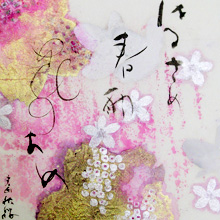 はるさめ
春雨
花のあめ